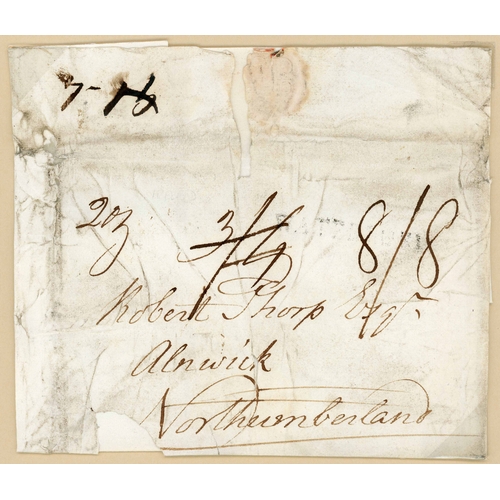 2oz 8/8
Robert Thorp Esqr.
Alnwick
Northumberland